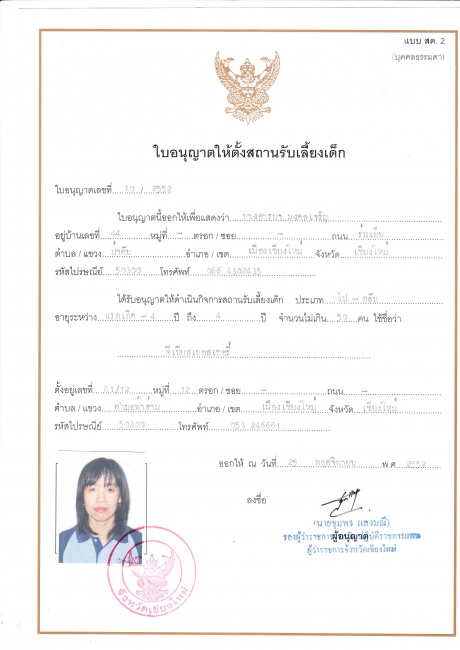 แบบ สต. 2
(บุคคลธรรมดา)
ใบอนุญาตให้ตั้งสถานรับเลี้ยงเด็ก
ใบอนุญาตเลขที่ 10 / 2552
ใบอนุญาตนี้ออกให้เพื่อแสดงว่า
อยู่บ้านเลขที่ 44 หมู่ที่ - ตรอก / ซอย - ถนน ร่มเย็น
ตำบล / แขวง ป่าตัน อำเภอ / เขต เมืองเชียงใหม่ จังหวัด เชียงใหม่
รหัสไปรษณีย์ 50300 โทรศัพท์ 086 4302435
ได้รับอนุญาตให้ดำเนินกิจการสถานรับเลี้ยงเด็ก ประเภท ไป - กลับ
อายุระหว่าง แรกเกิด - 4 ปี ถึง 4 ปี จำนวนไม่เกิน 50 คน ใช้ชื่อว่า
ตั้งอยู่เลขที่ 81/12 หมู่ที่ 12 ตรอก / ซอย - ถนน -
ตำบล / แขวง อำเภอ / เขต เมืองเชียงใหม่ จังหวัด เชียงใหม่
รหัสไปรษณีย์ 50300 โทรศัพท์ 053 246661
ออกให้ ณ วันที่ 25 พฤศจิกายน พ.ศ. 2552
ลงชื่อ
(นายชุมพร แสงมณี)
รองผู้ว่าราชการ ผู้อนุญาต ปฏิบัติราชการแทน
ผู้ว่าราชการจังหวัดเชียงใหม่
จังหวัดเชียงใหม่